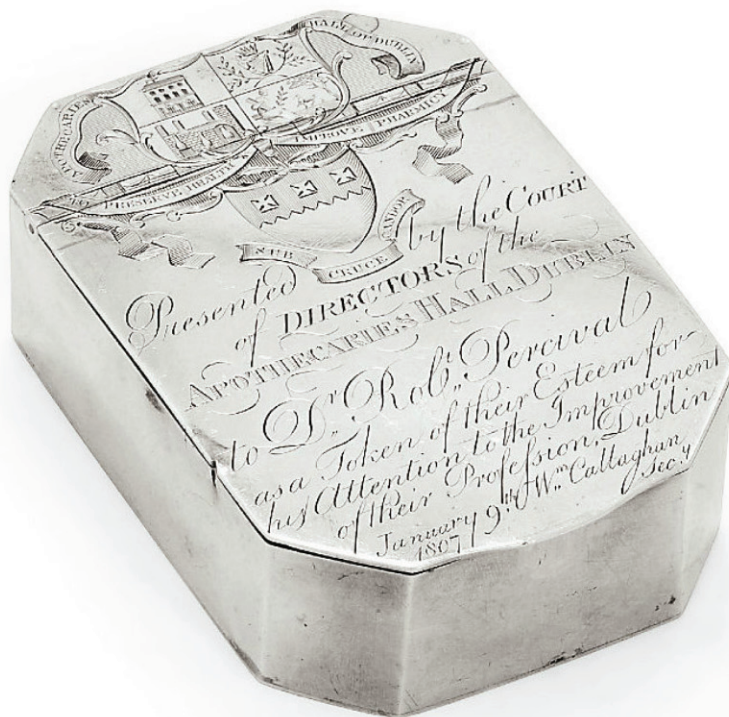 APOTHECARIES HALL OF DUBLIN
TO PRESERVE HEALTH & IMPROVE PHARMICY
SUB CRUCE CANDOR
Presented by the COURT
of DIRECTORS of the
APOTHECARIES HALL DUBLIN
to Dr. Robt. Percival
as a Token of their Esteem for
his Attention to the Improvement
of their Profession, Dublin
January 9th Wm Callaghan
1807 Secy